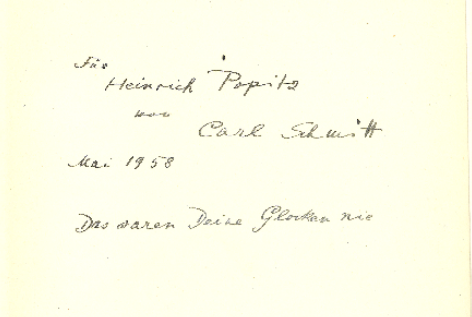 Für
Heinrich Popitz
von
Carl Schmitt
Mai 1958
Das waren Deine Glocken nie